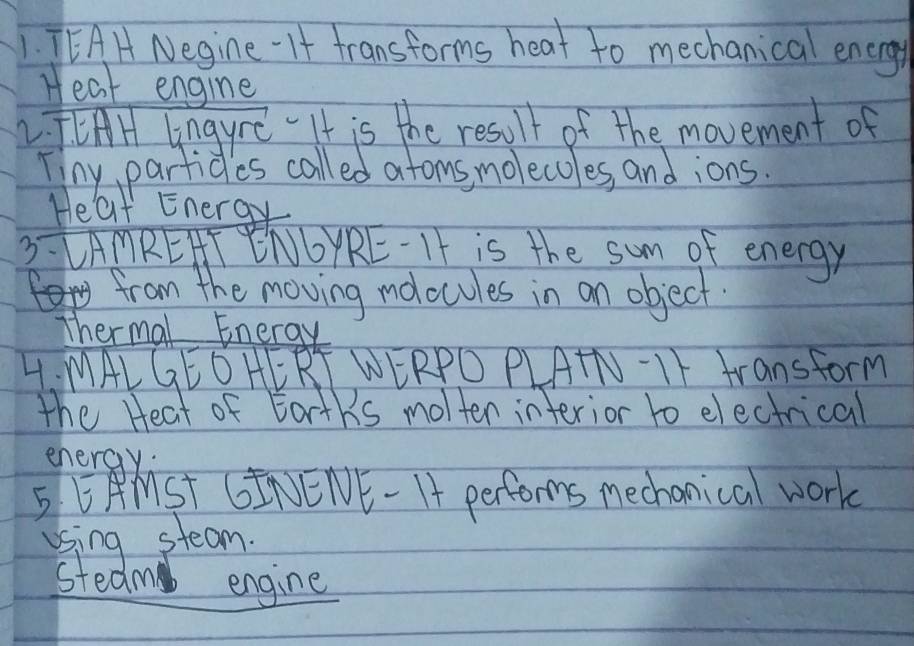 1. TEAH Negine - It transforms heat to mechanical energy
Heat engine
2. TEAH Engyre - It is the result of the movement of
Tiny particles called atoms, molecules, and ions.
Heat Energy
3. LAMREHT ENGYRE - It is the sum of energy
from the moving molocules in an object.
Thermal Energy
4. MALGEOHERT WERPO PLATN - It transform
the Heat of Earth's molten interior to electrical
energy.
5. EAMST GINENE - It performs mechanical work
using steam.
Steam engine